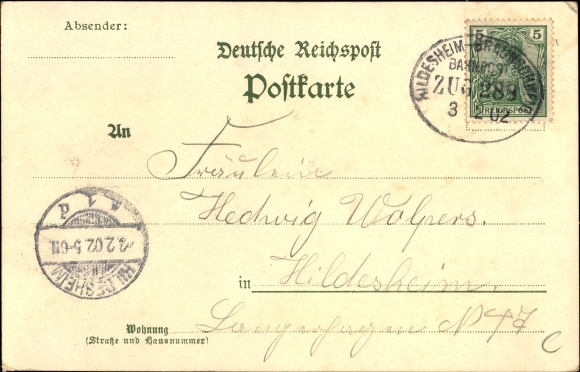 Absender:
Deutsche Reichspost
Postkarte
5 5
REICHSPOST
HILDESHEIM-BRAUNSCHWEIG
BAHNPOST
ZUG 289
3 2 02
An
Fräulein
Hedwig Wolpers.
in Hildesheim.
HILDESHEIM
3.2.02.5-6N.
Wohnung
(Straße und Hausnummer)
Langerhagen N 47